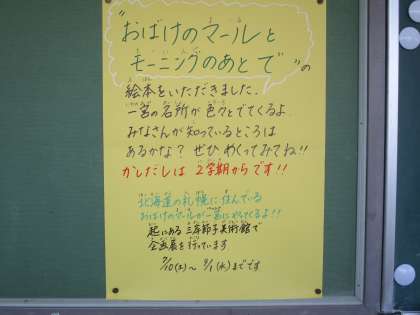 "おばけのマールと
モーニングのあとで"の
絵本をいただきました.
一宮の名所が色々とでてくるよ.
みなさんが知っているところは
あるかな? ぜひめくってみてね!!
かしだしは 2学期からです!!
北海道の札幌に住んでいる
おばけのマールが一宮にやってくるよ!!
起にある三岸節子美術館で
企画展を行っています
7/10(土)~ 9/1(水)までです